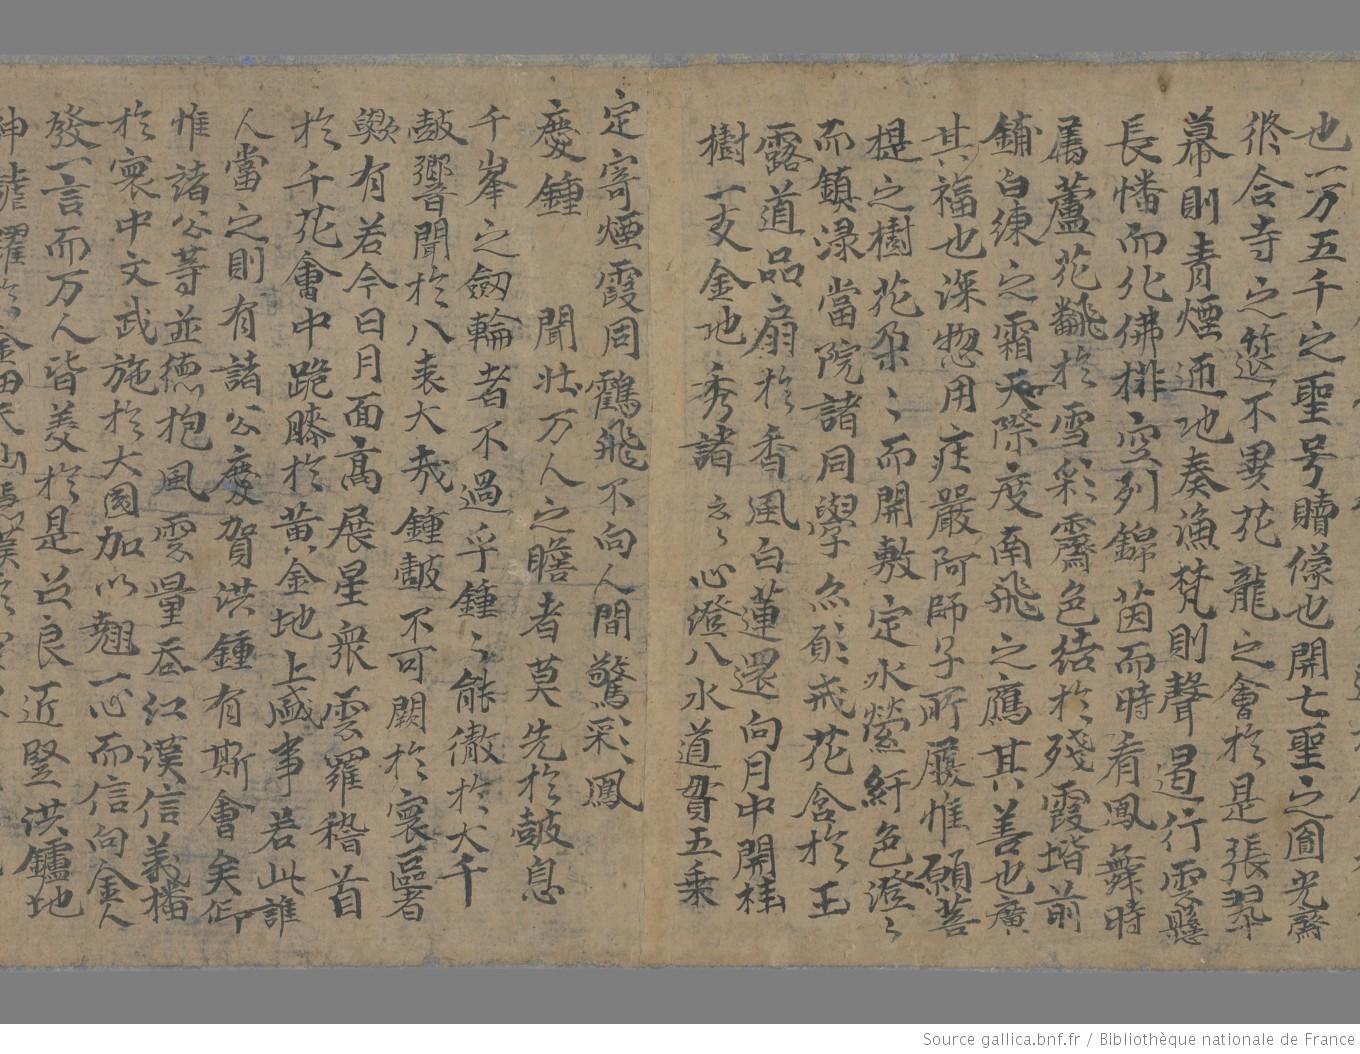 也一万五千之聖号贖像也開七聖之圎光齋
終合寺之筵不異花龍之會於是張翠
幕則青煙迊地奏漁梵則聲遏行雲懸
長幡而化佛排空列錦茵而時看鳳舞時
属蘆花飜於雪彩霽色结於殘霞堦前
鋪白練之霜天際度南飛之鴈其善也廣
其福也深惣用庄嚴阿師子所履惟願菩
提之樹花朶〻而開敷定水縈紆色澄〻
而鎮渌當院諸同學尒願戒花含於玉
露道品扇於香風白蓮還向月中開桂
樹一支金地秀諸云〻心澄八水道貫五乘
定寄煙霞同鶴飛不向人間驚彩鳳
慶鍾 聞壯万人之瞻者莫先於皷息
千峯之劒輪者不過乎鍾〻能徹於大千
皷響聞於八表大哉鍾皷不可闕於寰區者
歟有若今日月面高展星衆雲羅稽首
於千花會中跪膝於黄金地上咸事若此誰
人當之則有諸公慶賀洪鍾有斯會矣仰
惟諸公等並德抱風雲量吞江漢信義播
於寰中文武施於大國加以翹一心而信向金人
發一言而万人皆美於是召良近竪洪鑪地
神龍躍於金田